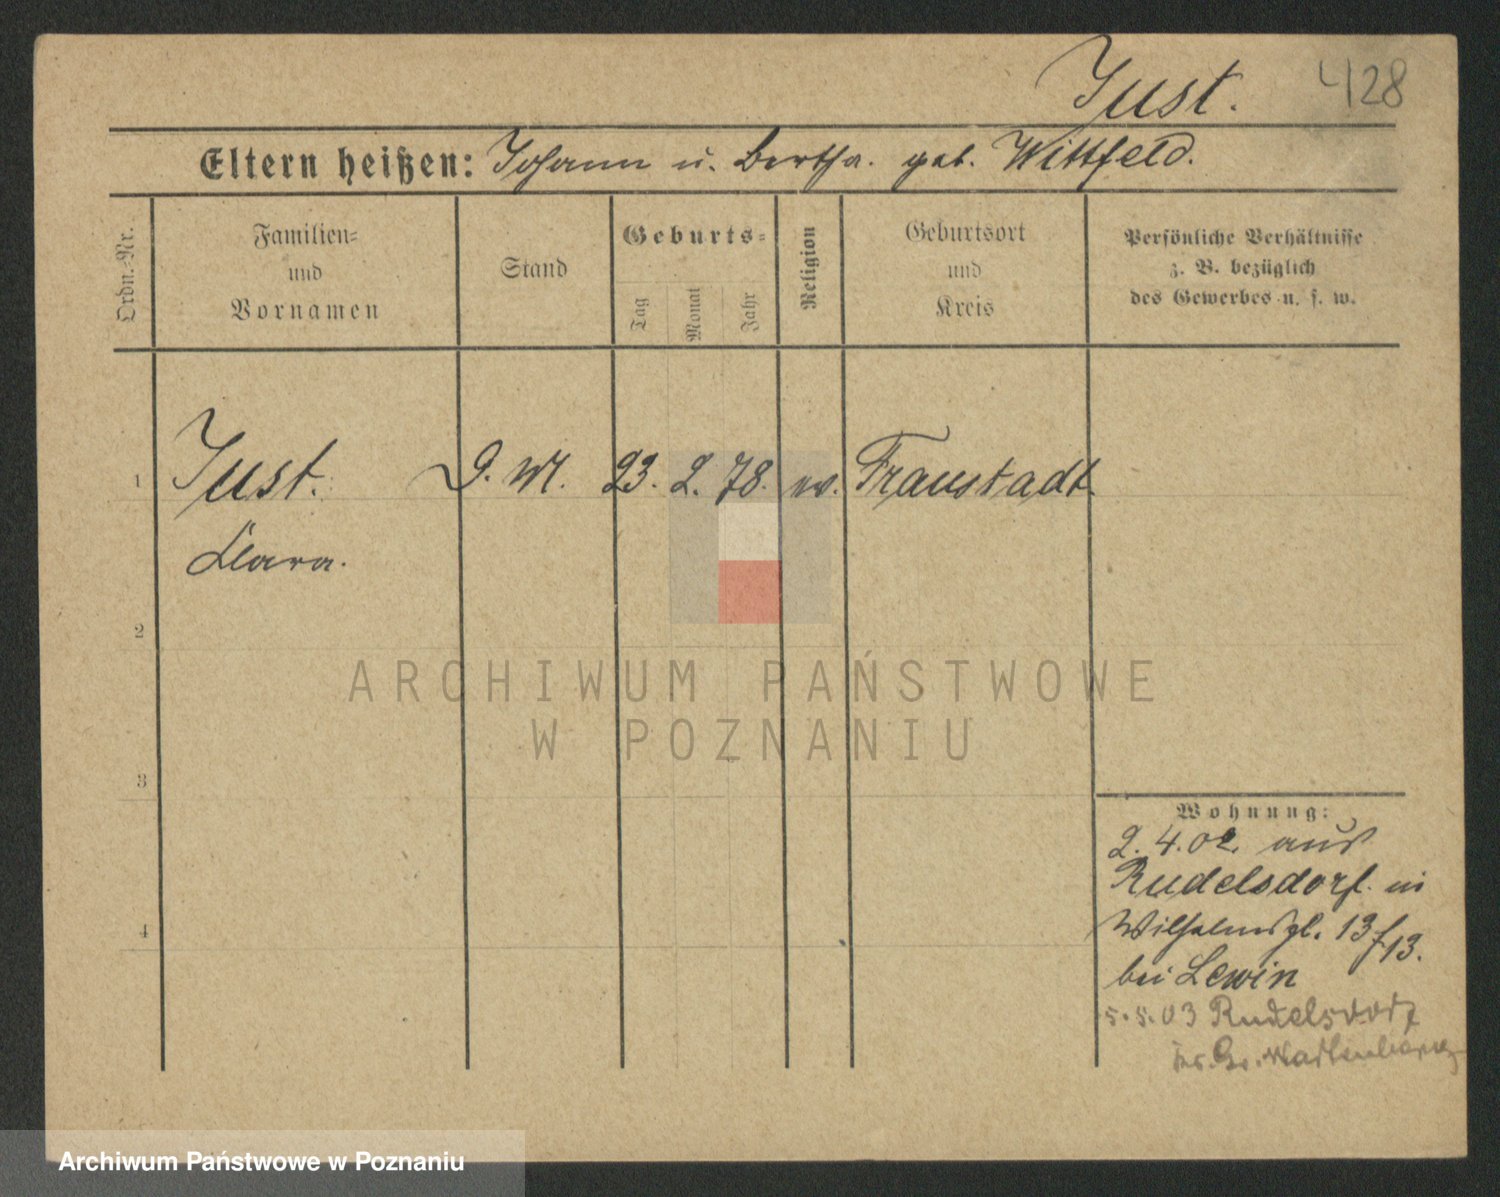 Just. 428
Eltern heißen: Johann u. Bertha. geb. Wittfeld.
Ordn.-Nr.
Familien-
und
Vornamen
Stand
Geburts-
Tag
Monat
Jahr
Religion
Geburtsort
und
Kreis
Persönliche Verhältnisse
z. B. bezüglich
des Gewerbes u. s. w.
1 Just. D. M. 23. 2. 78. ev. Fraustadt
Clara.
2
3
4
ARCHIWUM PAŃSTWOWE
W POZNANIU
Wohnung:
2. 4. 02. aus
Rudelsdorf. in
Wilhelmspl. 13/13.
bei Lewin
5.5.03 Rudelsdorf
Kr. Gr. Wartenberg
Archiwum Państwowe w Poznaniu